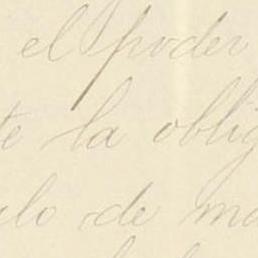 el poder
te la oblig
ulo de ma